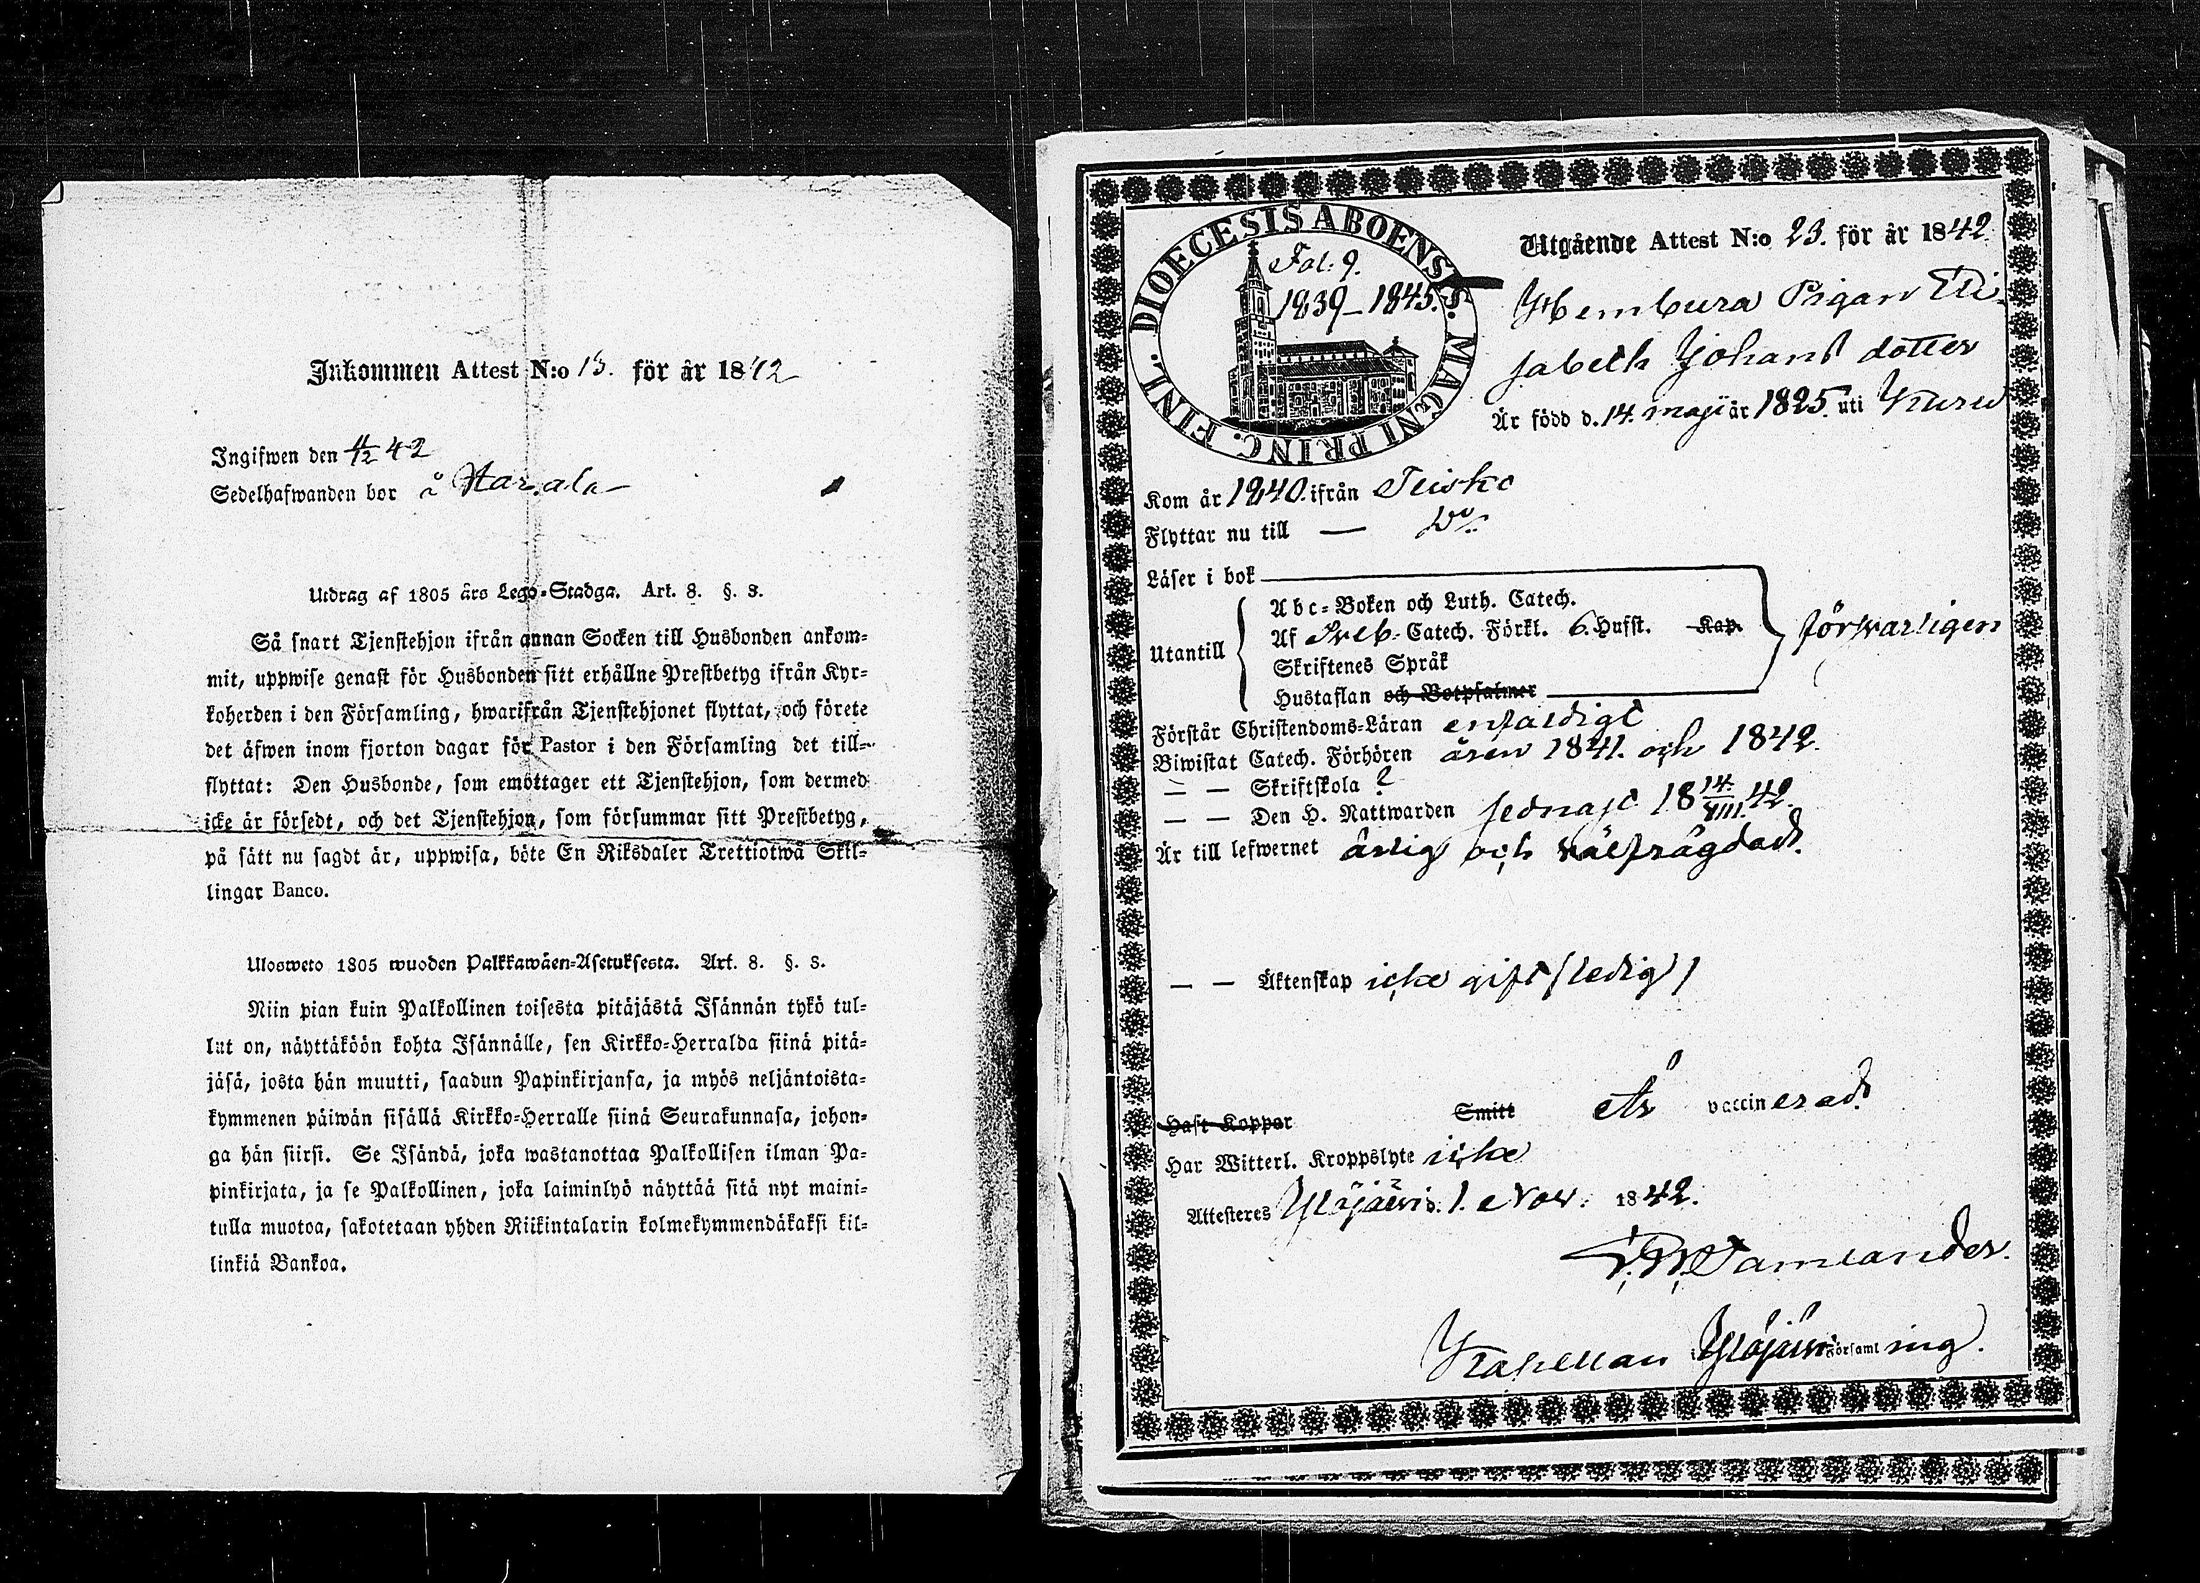 Inkommen Attest N:o 13. för år 1842
Ingifwen den 4/12 42
Sedelhafwanden bor å
Utdrag af 1805 års Lego-Stadga. Art. 8. §. 3.
Så snart Tjenstehjon ifrån annan Socken till Husbonden ankom-
mit, uppwise genast för Husbonden sitt erhållne Prestbetyg ifrån Kyr-
koherden i den Församling, hwarifrån Tjenstehjonet flyttat, och förete
det äfwen inom fjorton dagar för Pastor i den Församling det till-
flyttat: Den Husbonde, som emottager ett Tjenstehjon, som dermed
icke är försedt, och det Tjenstehjon, som försummar sitt Prestbetyg,
på sätt nu sagdt är, uppwisa, böte En Riksdaler Trettiotwå Skil-
lingar Banco.
Ulosweto 1805 wuoden Palkkawäen-Asetuksesta. Art. 8. §. 3.
Niin pian kuin Palkollinen toisesta pitäjästä Isännän tykö tul-
lut on, näyttäköön kohta Isännälle, sen Kirkko-Herralda siinä pitä-
jäsä, josta hän muutti, saadun Papinkirjansa, ja myös neljäntoista-
kymmenen päiwän sisällä Kirkko-Herralle siinä Seurakunnasa, johon-
ga hän siirsi. Se Isändä, joka wastanottaa Palkollisen ilman Pa-
pinkirjata, ja se Palkollinen, joka laiminlyö näyttää sitä nyt maini-
tulla muotoa, sakotetaan yhden Riikintalarin kolmekymmendäkaksi kil-
linkiä Bankoa.
DIOECESIS ABOENSIS. MAGNI PRINC. FINL.
Fol: 9.
1839-1845.
Utgående Attest N:o 23. för år 1842.
Hembura Pigan Eli
sabeth Johans dotter
Är född d. 14. maji år 1825. uti Kuru
Kom år 1840. ifrån Teisko
Flyttar nu till — Do
Läser i bok
Utantill
Abc-Boken och Luth. Catech.
Af Sveb. Catech. Förkl. 6. Hufst. Kap.
Skriftenes Språk
Hustaflan och Botpsalmer
försvarligen
Förstår Christendoms-Läran enfaldigt
Biwistat Catech. Förhören åren 1841. och 1842.
— — Skriftskola ?
— — Den H. Nattwarden sednast 18 14/VIII. 42.
Är till lefwernet ärlig och välfrägdad.
— — Äktenskap icke gift /ledig/
Haft Koppor Smitt Är vaccinerad.
Har Witterl. Kroppslyte icke
Attesteres Ylöjärvi d. 1. Nov. 1842.
Tamlander.
Kapellan i Ylöjärvi Församling.